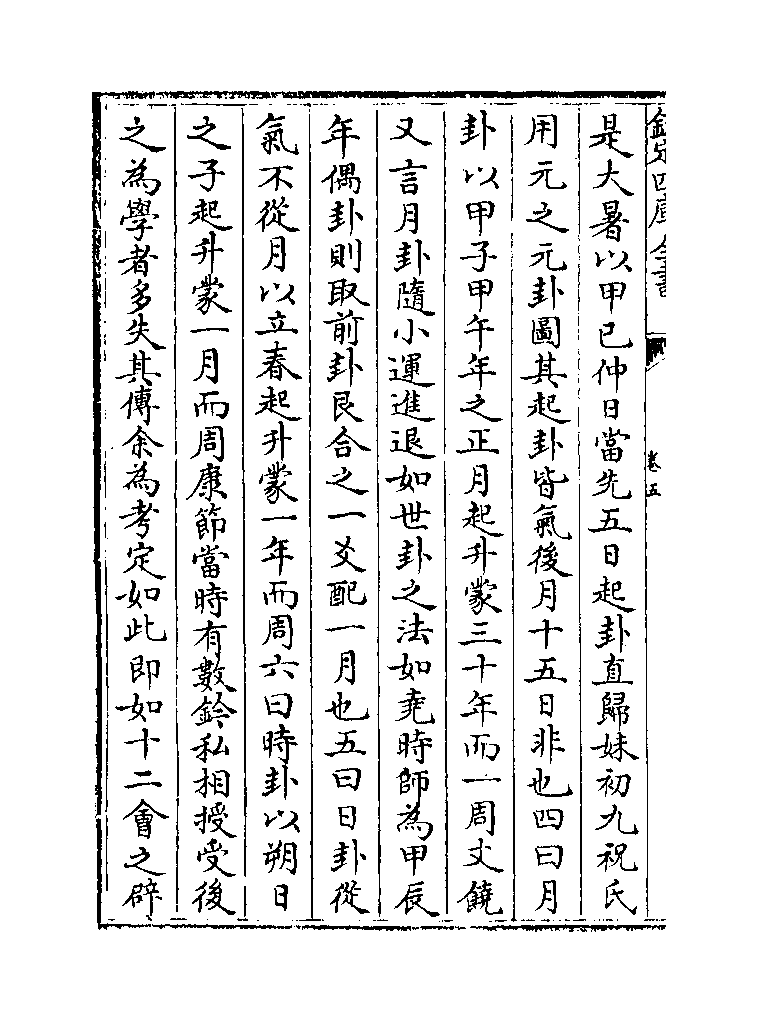 欽定四庫全書
卷五
是大暑以甲已仲日當先五日起卦直歸妹初九祝氏
用元之元卦圖其起卦皆氣後月十五日非也四曰月
卦以甲子甲午年之正月起升蒙三十年而一周史饒
又言月卦隨小運進退如世卦之法如堯時師為甲辰
年偶卦則取前卦艮合之一爻配一月也五曰日卦從
氣不從月以立春起升蒙一年而周六曰時卦以朔日
之子起升蒙一月而周康節當時有數鈐私相授受後
之為學者多失其傳余為考定如此即如十二會之辟